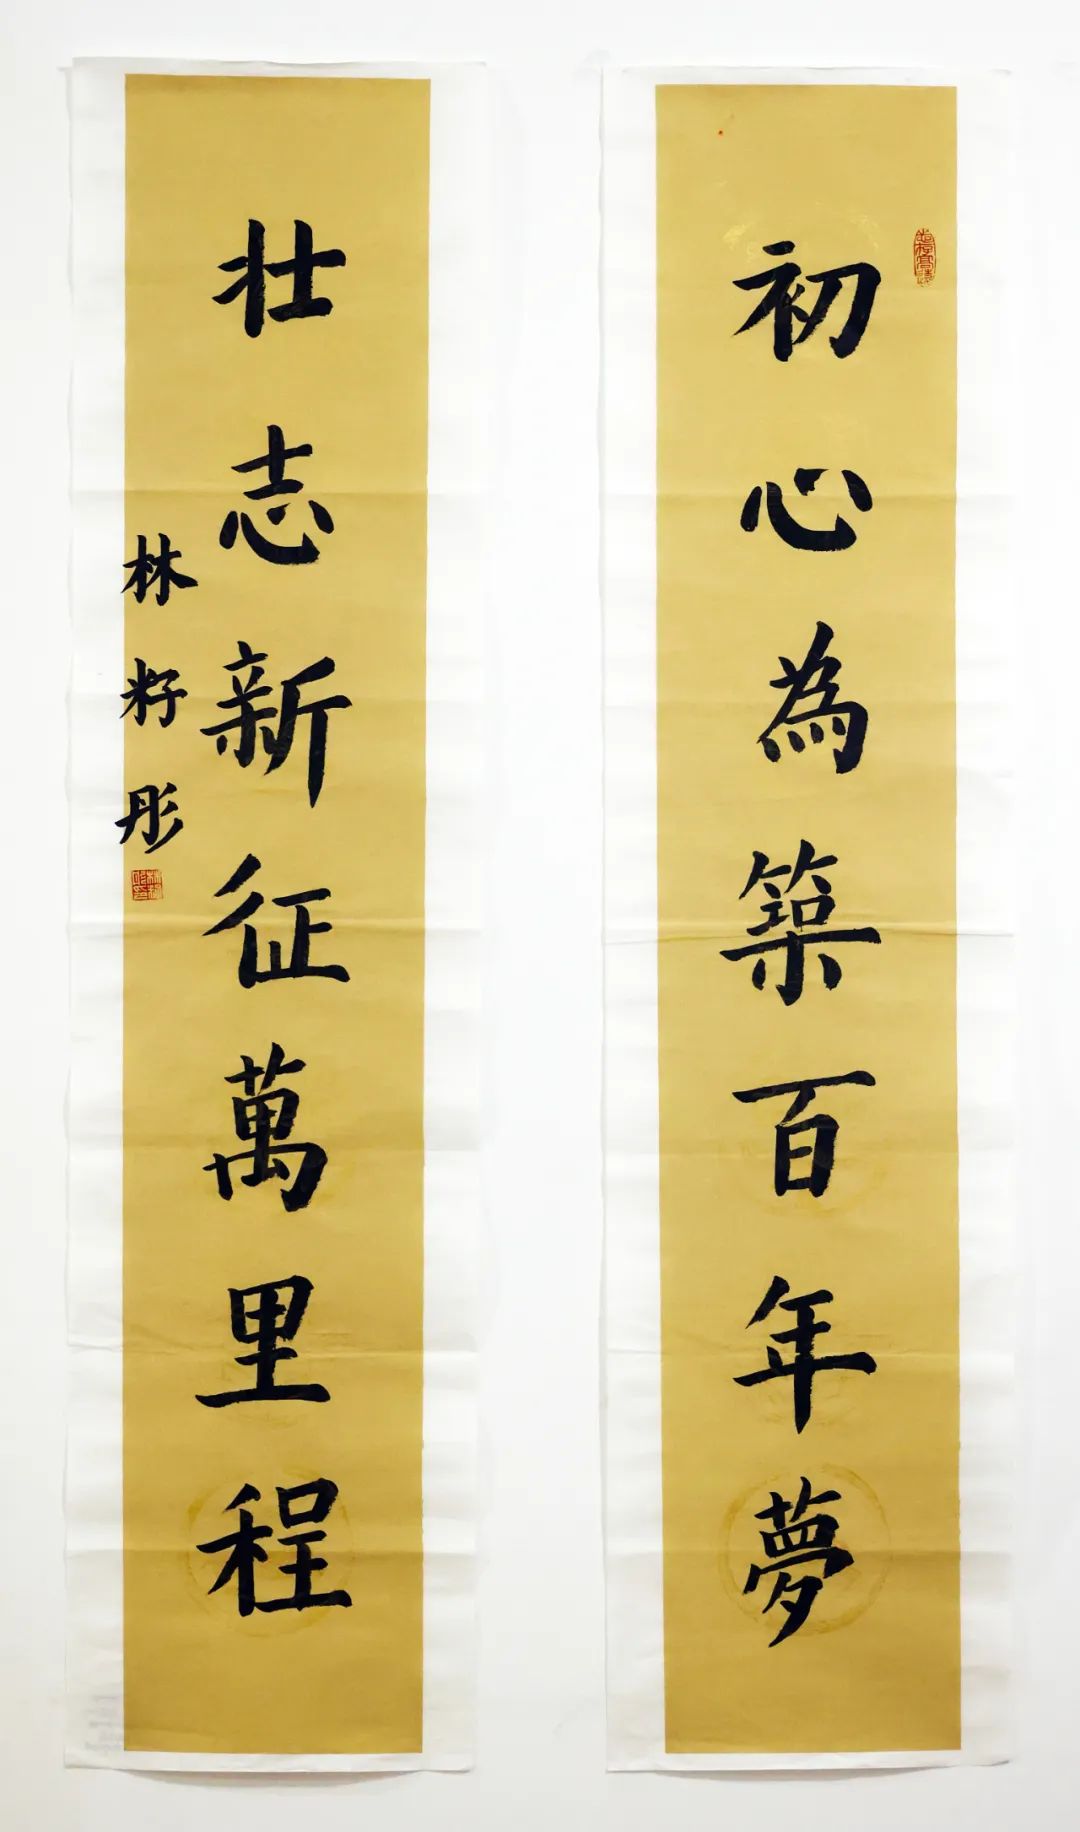 初心為築百年夢
壮志新征萬里程
林籽彤